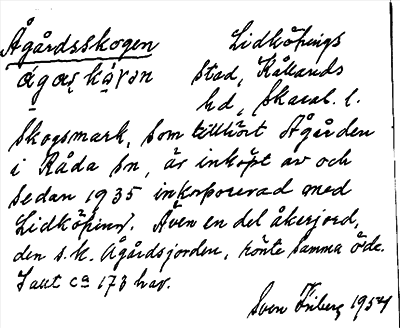 Ågårdsskogen
Lidköpings
stad, Kållands
hd, Skarab. l.
Skogsmark, som tillhört Ågården
i Råda sn, är inköpt av och
sedan 1935 inkorporerad med
Lidköping. Även en del åkerjord,
den s.k. Ågårdsjorden, rönte samma öde.
Tall ca 173 har.
Sven Friberg 1954